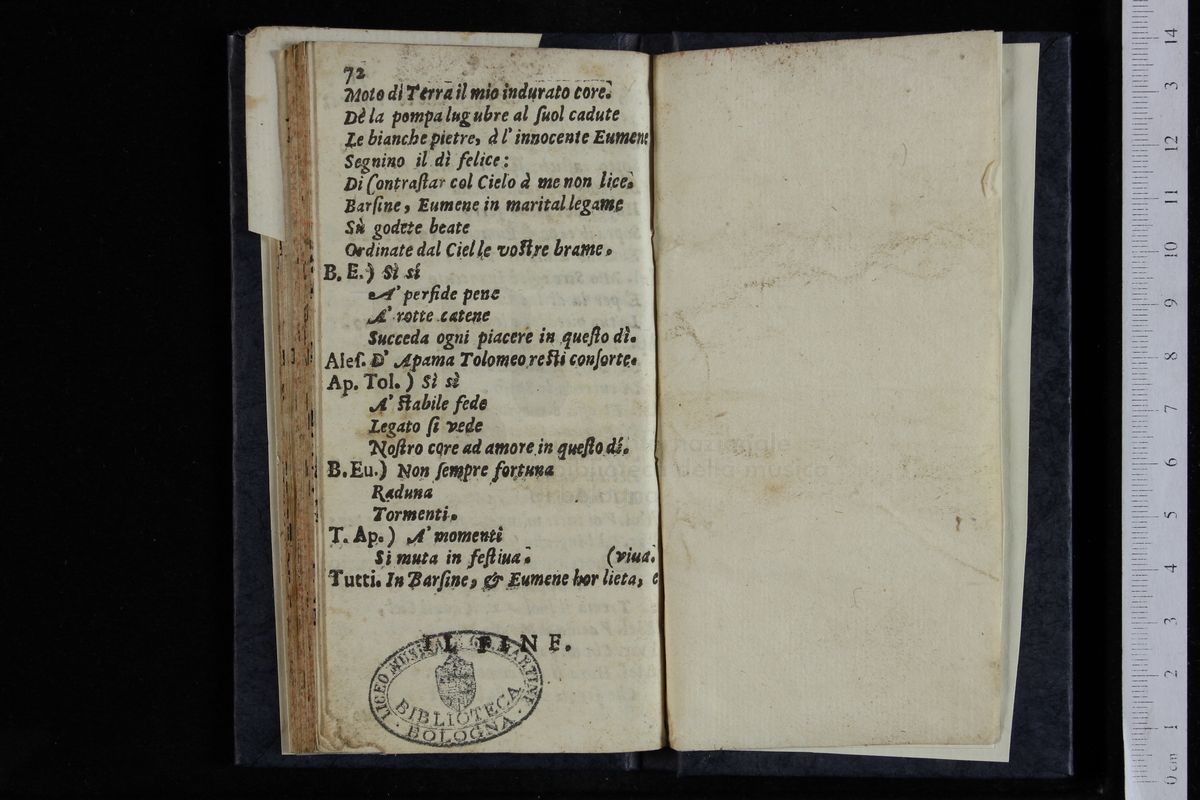 72
Moto di Terra il mio indurato core.
Dè la pompa lugubre al ſuol cadute
Le bianche pietre, à l' innocente Eumene
Segnino il dì felice:
Di Contraſtar col Cielo à me non lice.
Barſine, Eumene in marital legame
Sù godete beate
Ordinate dal Ciel le voſtre brame.
B. E.) Sì sí
A' perfide pene
A' rotte catene
Succeda ogni piacere in queſto dì.
Aleſ. D' Apama Tolomeo reſti conſorte.
Ap. Tol.) Sì sì
A' ſtabile fede
Legato ſi vede
Noſtro core ad amore in queſto dí.
B. Eu.) Non ſempre fortuna
Raduna
Tormenti.
T. Ap.) A' momenti
Si muta in feſtiua. (viua.
Tutti. In Barſine, & Eumene hor lieta, e
IL FINE.
LICEO MUSICALE G. B. MARTINI
BIBLIOTECA
BOLOGNA